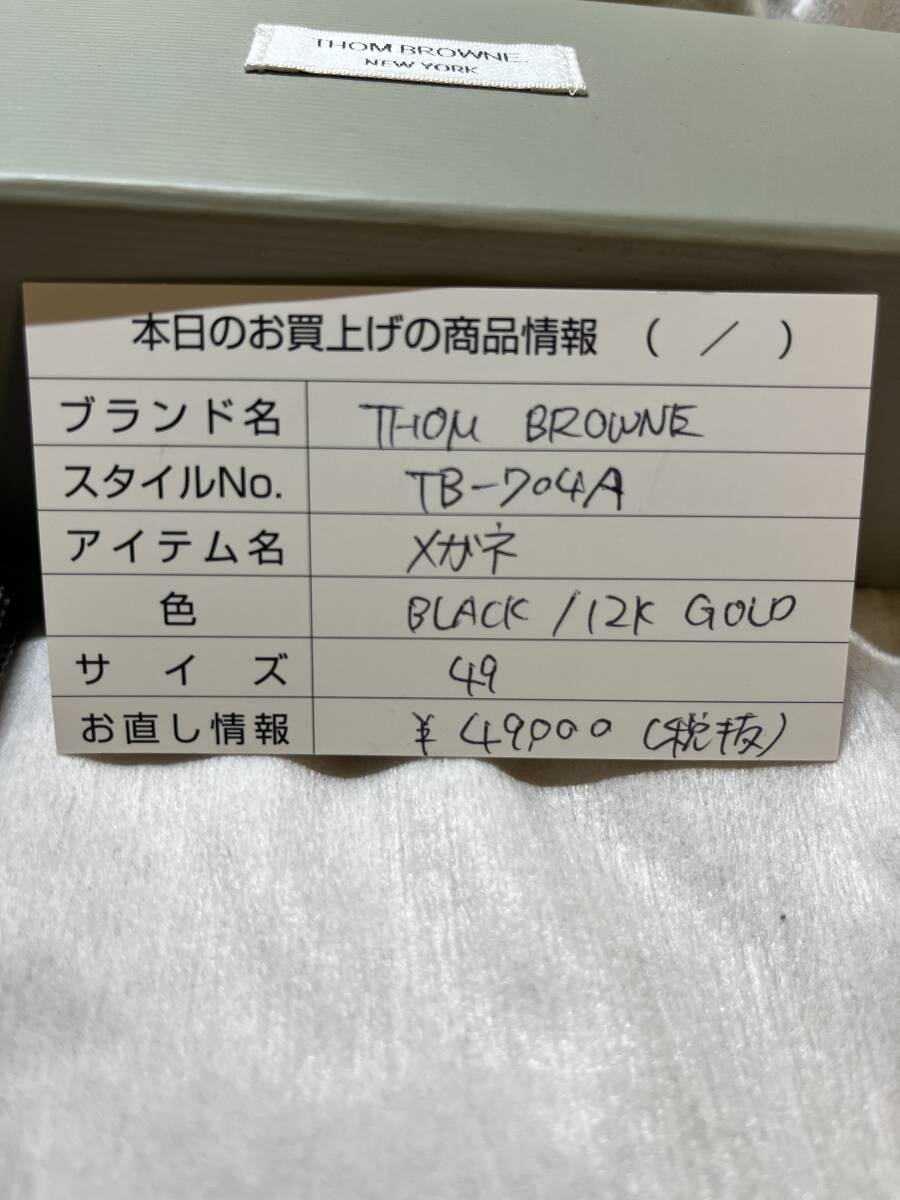 THOM BROWNE.
NEW YORK
本日のお買上げの商品情報 ( / )
ブランド名 THOM BROWNE
スタイルNo. TB-704A
アイテム名 メガネ
色 BLACK / 12K GOLD
サイズ 49
お直し情報 ¥ 49,000 (税抜)